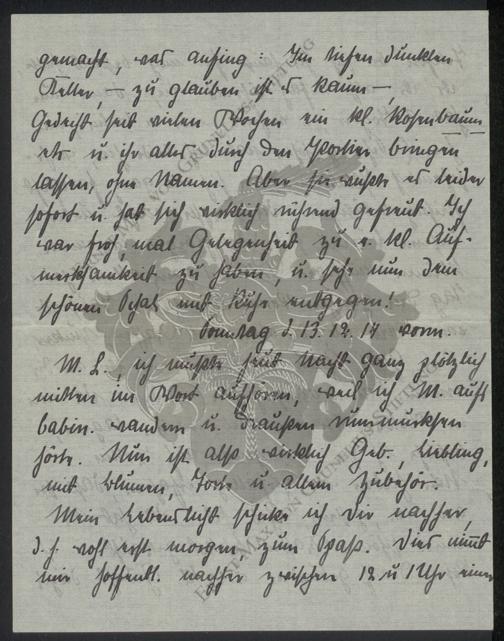 gemacht, das anfing: Im tiefen dunklen
Keller, — zu glauben ist es kaum —,
Gedeiht seit vielen Wochen ein kl. Rosenbaum
etc u. ihr alles durch den Portier bringen
lassen, ohne Namen. Aber sie wußte es leider
sofort u. hat sich wirklich rührend gefreut. Ich
war froh, mal Gelegenheit zu e. kl. Auf-
merksamkeit zu haben, u. sehe nun dem
schönen Schal mit Ruhe entgegen!
Sonntag d. 13.12.14 vorm.
M. L., ich mußte heut Nacht ganz plötzlich
mitten im Wort aufhören, weil ich M. aufs
wandern u. draußen rummurksen
hörte. Nun ist also wirklich Geb., Liebling,
mit Blumen, Torte u. allem Zubehör.
Mein Lebenslicht schicke ich Dir nachher,
d. h. wohl erst morgen, zum Spaß. Dies nimmt
mir hoffentl. nachher zwischen 12 u 1 Uhr einer